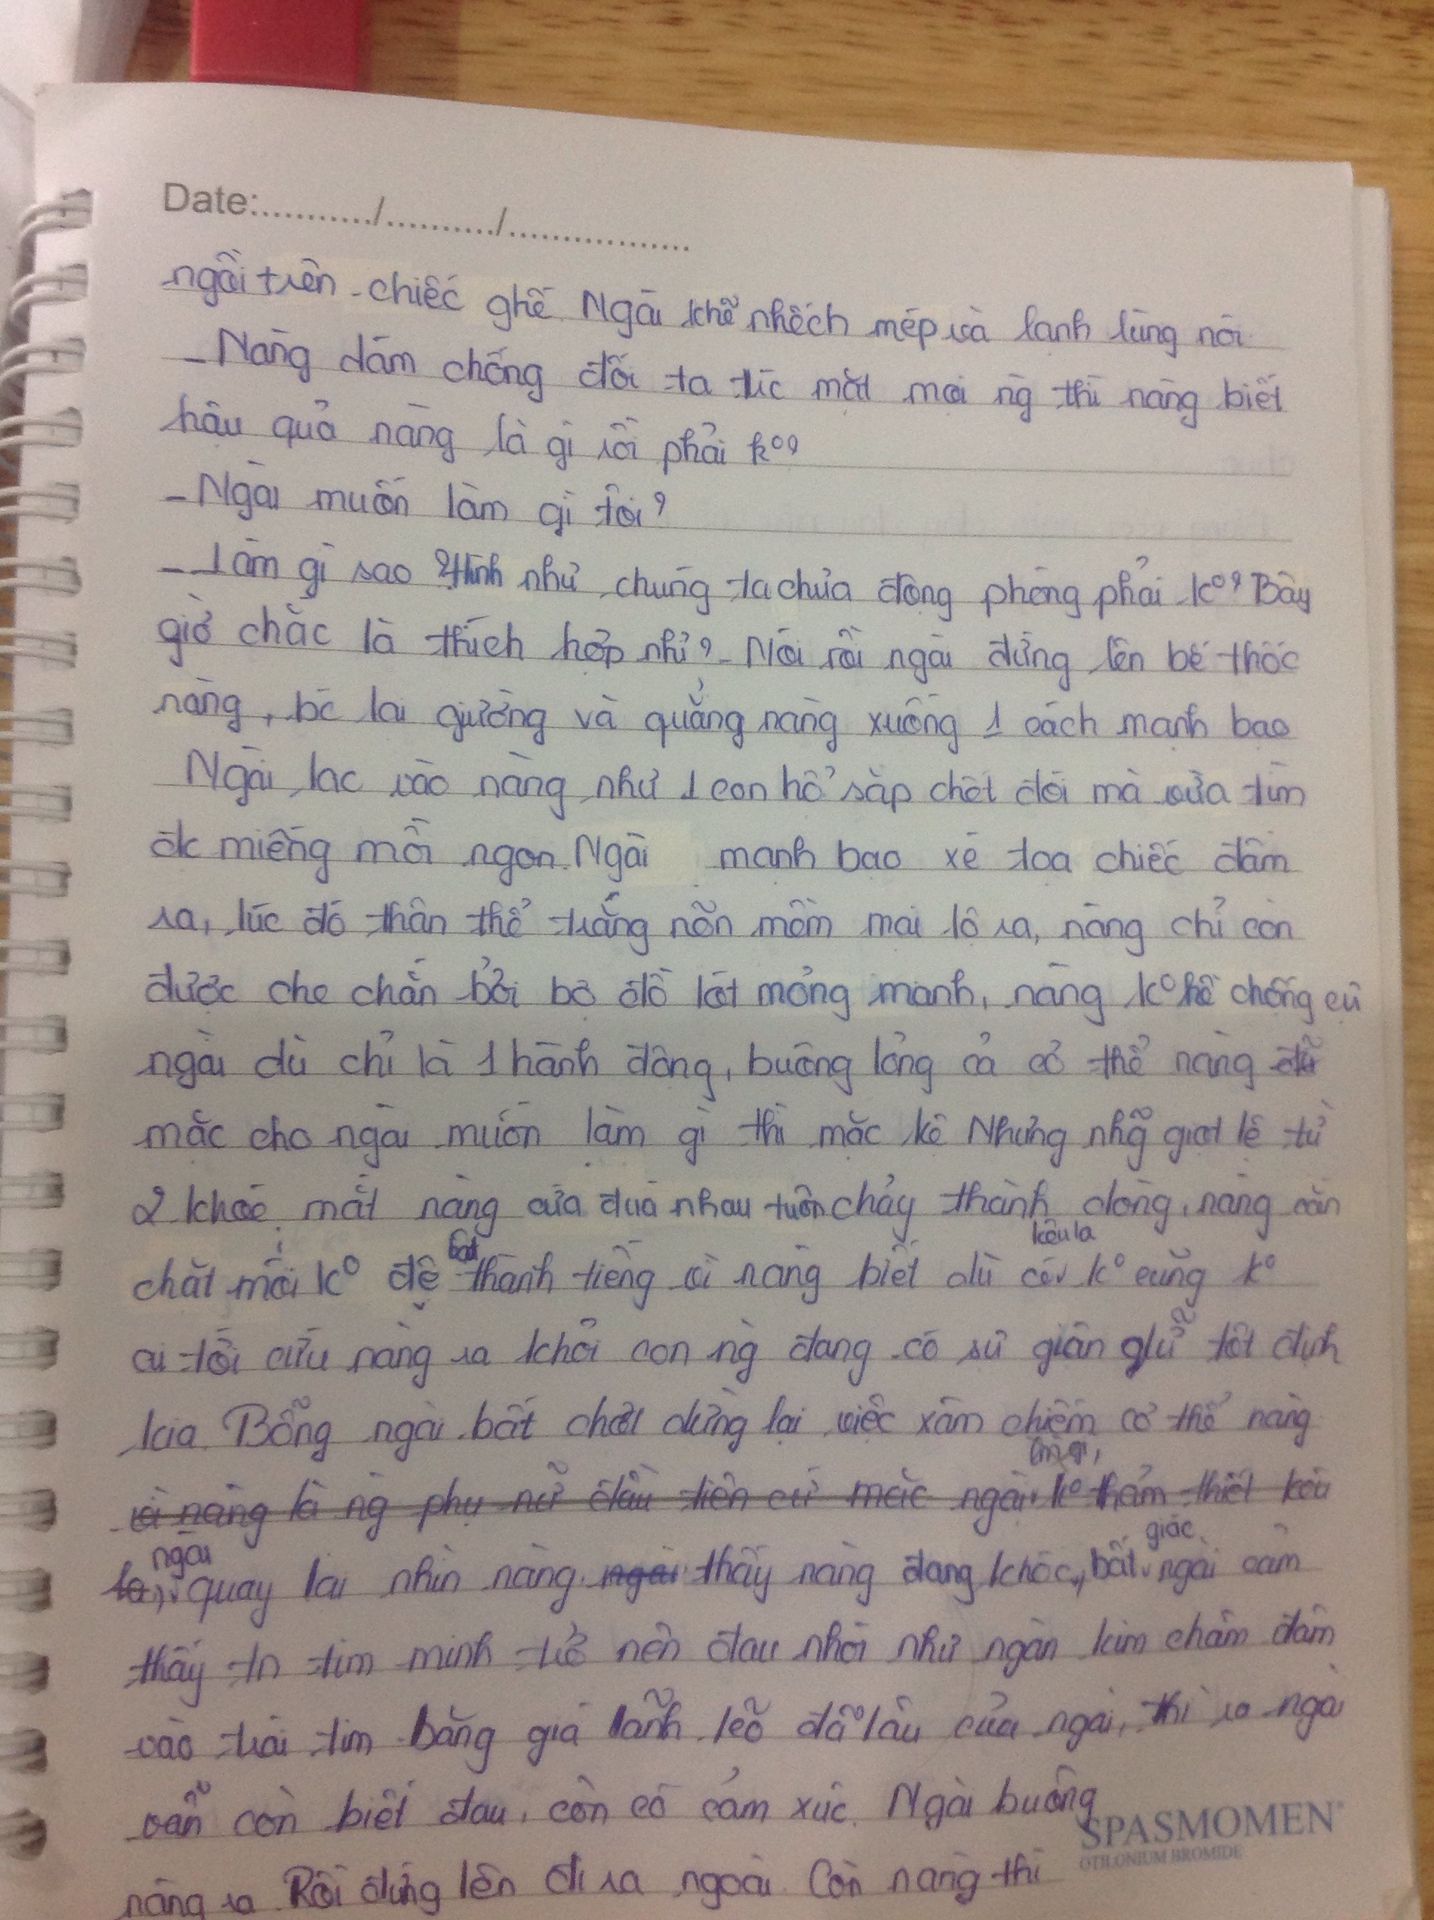 Date:............/............/....................
ngồi trên chiếc ghế. Ngài khẽ nhếch mép và lạnh lùng nói
- Nàng dám chống đối ta trc mặt mọi ng thì nàng biết
hậu quả nàng là gì rồi phải kº?
- Ngài muốn làm gì tôi?
- Làm gì sao? Hình như chúng ta chưa động phòng phải kº? Bây
giờ chắc là thích hợp nhỉ? - Nói rồi ngài đứng lên bế thốc
nàng, bc lại giường và quẳng nàng xuống 1 cách mạnh bạo
Ngài lạc vào nàng như 1 con hổ sắp chết đói mà vừa tìm
đc miếng mồi ngon. Ngài mạnh bạo xé toạc chiếc đầm
ra, lúc đó thân thể trắng nõn mềm mại lộ ra, nàng chỉ còn
được che chắn bởi bộ đồ lót mỏng manh, nàng kº hề chống cự
ngài dù chỉ là 1 hành động, buông lỏng cả cơ thể nàng
mặc cho ngài muốn làm gì thì mặc kệ Nhưng nhữg giọt lệ từ
2 khóe mắt nàng cứa đua nhau tuôn chảy thành dòng, nàng cắn
chặt môi kº để bật thành tiếng vì nàng biết dù có kêu la kº cũng kº
ai tới cứu nàng ra khỏi con ng đang có sự giận giữ tột định
kia. Bỗng ngài bất chợt dừng lại việc xâm chiếm cơ thể nàng
vì nàng là ng phụ nữ đầu tiên cứ mặc ngài làm gì, kº thảm thiết kêu
la, ngài quay lại nhìn nàng ngài thấy nàng đang khóc, bất giác ngài cảm
thấy tr tim mình trở nên đau nhói như ngàn kim châm đâm
vào trái tim băng giá lãnh lẽo đã lâu của ngài, thì ra ngài
vẫn còn biết đau, còn có cảm xúc. Ngài buông
SPASMOMEN®
OTILONIUM BROMIDE
nàng ra. Rồi đứng lên đi ra ngoài. Còn nàng thì